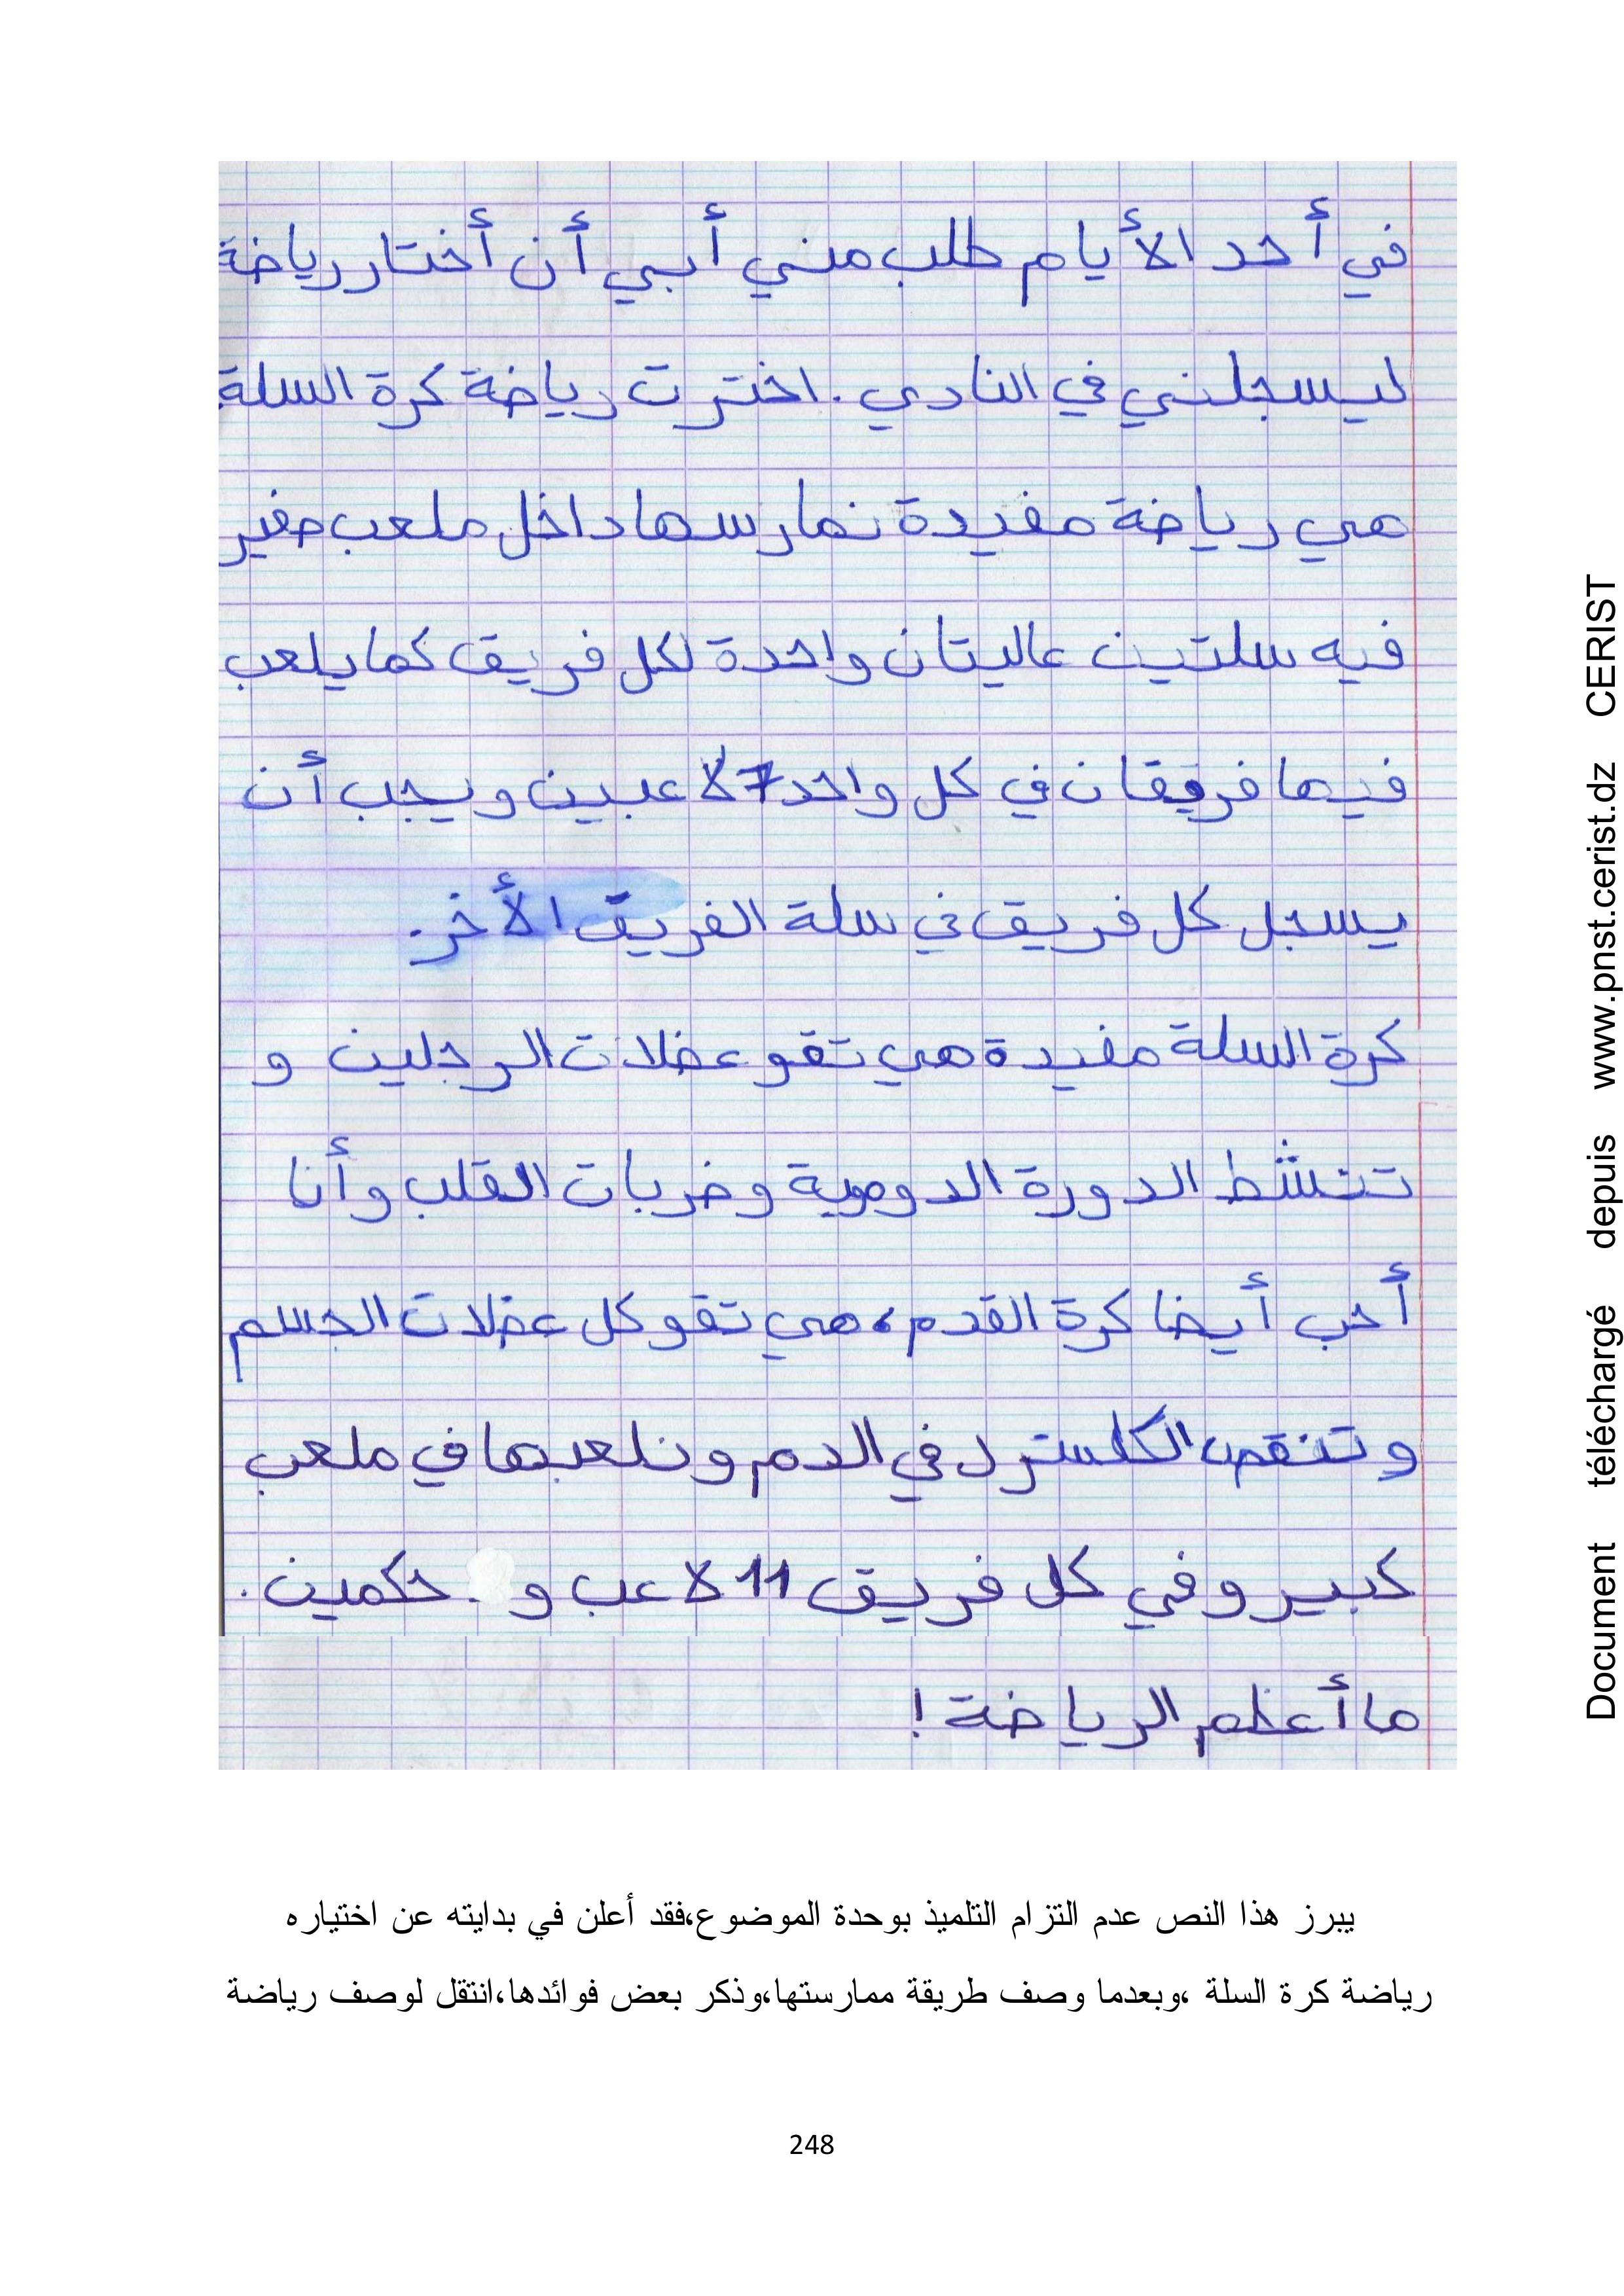 في أحد الأيام طلب مني أبي أن أختار رياضة
ليسجلني في النادي. اخترت رياضة كرة السلة
هي رياضة مفيدة نمارسها داخل ملعب صغير
فيه سلتين عاليتان واحدة لكل فريق كما يلعب
فيها فريقان في كل واحد 7 لاعبين ويجب أن
يسجل كل فريق في سلة الفريق الأخر.
كرة السلة مفيدة هي تقو عضلات الرجلين و
تنشط الدورة الدومية وضربات القلب وأنا
أحب أيضا كرة القدم، هي تقو كل عضلات الجسم
وتنقص الكلسترل في الدم ونلعبها في ملعب
كبير وفي كل فريق 11 لاعب و حكمين.
ما أعظم الرياضة!
يبرز هذا النص عدم التزام التلميذ بوحدة الموضوع،فقد أعلن في بدايته عن اختياره
رياضة كرة السلة ،وبعدما وصف طريقة ممارستها،وذكر بعض فوائدها،انتقل لوصف رياضة
248
Document téléchargé depuis www.pnst.cerist.dz CERIST